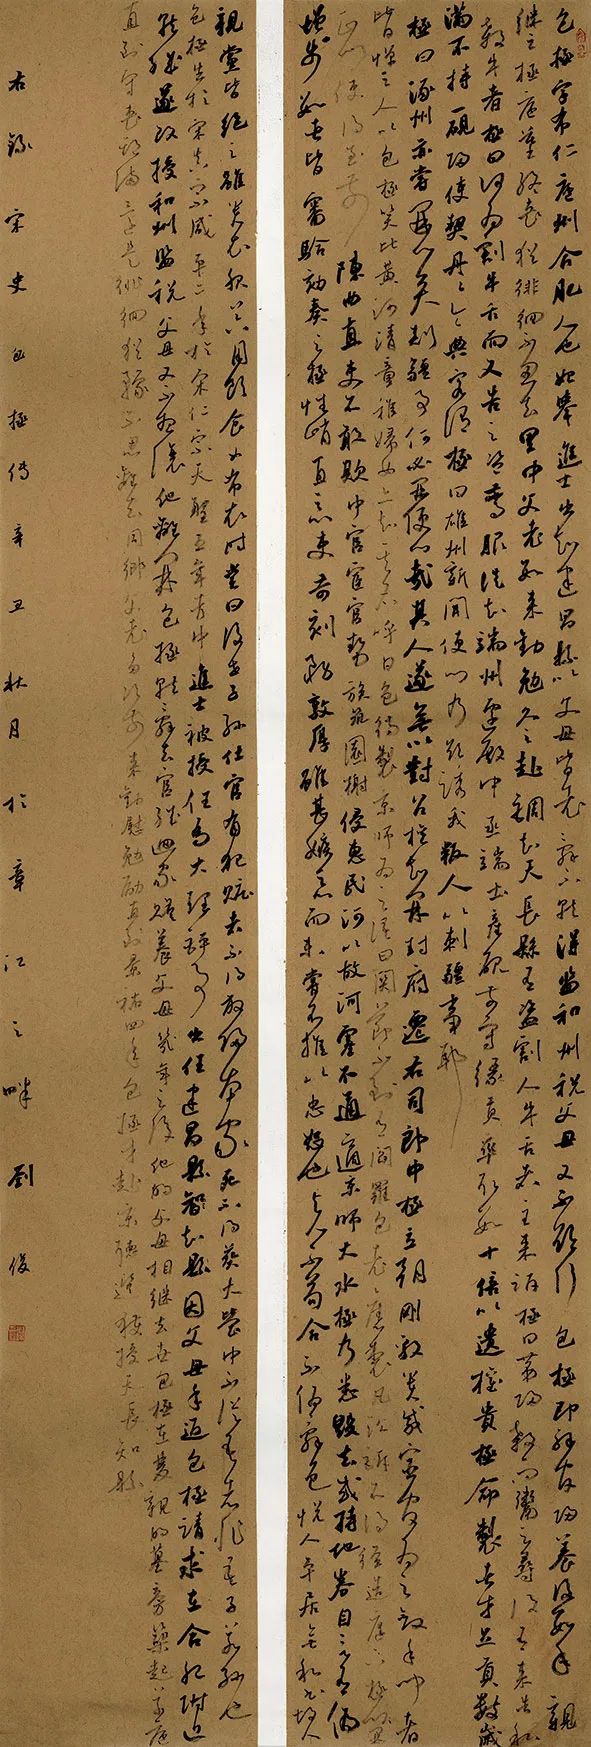 包拯字希仁庐州合肥人也始举进士出知建昌县以父母皆老辞不就得监和州税父母又不欲行包拯即解官归养后数年親
继亡拯庐墓终丧犹徘徊不忍去里中父老数来劝勉久之赴调知天长县有盗割人牛舌者主来诉拯曰第归杀而鬻之寻复有来告私
殺牛者拯曰何为割牛舌而又告之盗惊服徙知端州迁殿中丞端土产硯前守缘贡率取数十倍以遗權貴拯命製者才足貢數歲
满不持一硯归使契丹契丹令典客谓拯曰雄州新開便門乃欲誘我叛人以刺疆事耶
拯曰涿州亦嘗開門矣刺疆事何必開便門哉其人遂無以對召權知開封府遷右司郎中拯立朝剛毅貴戚宦官为之斂手聞者
皆憚之人以包拯笑比黄河清童稚婦女亦知其名呼曰包待製京師为之語曰関節不到有閻羅包老舊製凡訟訴不得徑造庭下拯開
正門使得至前
陳曲直吏不敢欺中官宦官勢族築園榭侵惠民河以故河塞不通適京師大水拯乃悉毀去或持地券自言有偽
增步數者皆審驗劾奏之拯性峭直惡吏苛刻務敦厚雖甚嫉惡而未嘗不推以忠恕也与人不苟合不偽辭色悦人平居無私書故人
親黨皆絶之雖貴衣服器用飲食如布衣时嘗曰後世子孫仕宦有犯贓者不得放歸本家死不得葬大塋中不從吾志非吾子若孫也
包拯生於宋真宗咸平二年於宋仁宗天聖五年考中進士被授任为大理評事出任建昌縣知縣因父母年迈包拯請求在合肥附近
就職遂改授和州監税父母又不想離他離開包拯就辭去官職迴家贍養父母幾年之後他的父母相继去世包拯在雙親的墓旁築起草廬
直到守喪期滿还是徘徊猶豫不忍離去同鄉父老多次前来勸慰勉勵直到景祐四年包拯才赴京聽選獲授天長知縣
右録宋史包拯傳辛丑秋月於章江之畔劉俊